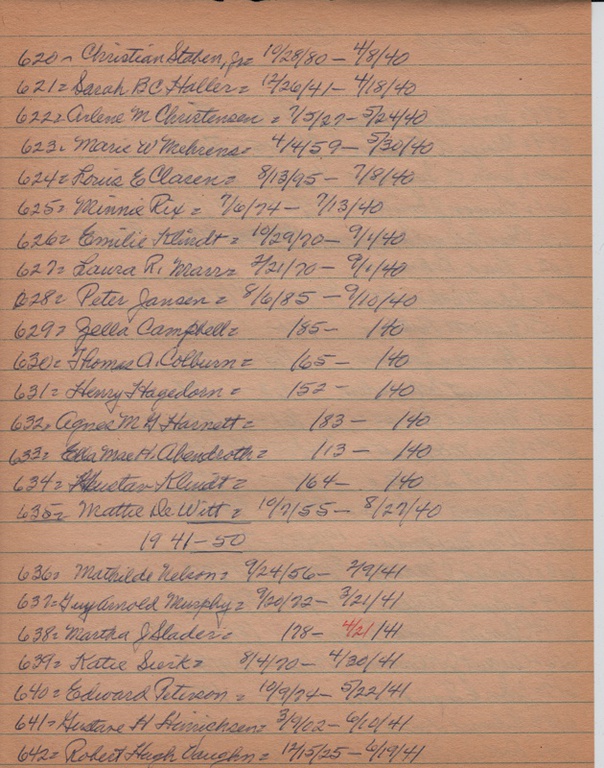 620- Christian Staben, Jr= 10/28/80 - 4/8/40
621= Sarah B C Haller= 12/26/41 - 4/18/40
622= Arlene M Christensen = 7/5/27 - 5/24/40
623= Marie W Mehrens= 4/4/59 - 5/30/40
624= Louis E Clasen= 8/13/95 - 7/8/40
625= Minnie Rix = 7/6/74 - 7/13/40
626= Emilie Klindt= 10/29/70 - 9/1/40
627= Laura R. Marr= 2/21/70 - 9/1/40
628= Peter Jansen= 8/6/85 - 9/10/40
629= Zella Campbell= /85 - /40
630= Thomas A. Colburn= /65 - /40
631= Henry Hagedorn= /52 - /40
632= Agnes M G Harnett= /83 - /40
633= Ella Mae H. Abendroth= /13 - /40
634= Gustav Klindt= /64 - /40
635= Mattie De Witt = 10/7/55 - 8/27/40
1941-50
636= Mathilde Nelson= 9/24/56 - 2/9/41
637= Guy Arnold Murphy= 9/20/72 - 3/21/41
638= Martha J Slader= /78 - 4/21/41
639= Katie Sierk= 8/4/70 - 4/30/41
640= Edward Peterson= 10/9/74 - 5/22/41
641= Gustave H Hinrichsen= 3/9/02 - 6/10/41
642= Robert Hugh Vaughn= 12/15/25 - 6/19/41